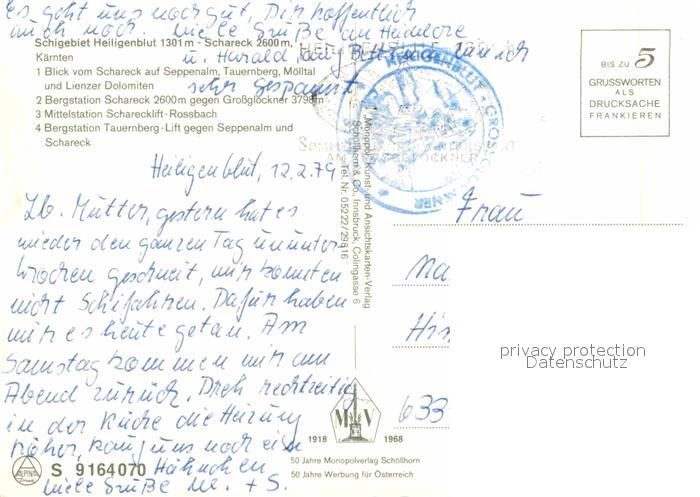 Es geht uns noch gut, Dir hoffentlich
auch noch. Viele Grüße an Heidelore
u. Harald, auf bin ich
sehr gespannt
Schigebiet Heiligenblut 1301 m - Schareck 2600 m,
Kärnten
1 Blick vom Schareck auf Seppenalm, Tauernberg, Mölltal
und Lienzer Dolomiten
2 Bergstation Schareck 2600 m gegen Großglöckner 3798 m
3 Mittelstation Schareck­lift - Rossbach
4 Bergstation Tauernberg - Lift gegen Seppenalm und
Schareck
HEILIGENBLUT
AM GROSSGLOCKNER
HEILIGENBLUT · GROSSGLOCKNER
BIS ZU 5
GRUSSWORTEN
ALS
DRUCKSACHE
FRANKIEREN
Heiligenblut, 12.2.79
Lb. Mutter, gestern hat es
wieder den ganzen Tag ununter-
brochen geschneit, wir konnten
nicht Schifahren. Dafür haben
wir es heute getan. Am
Samstag kommen wir am
Abend zurück. Dreh rechtzeitig
in der Küche die Heizung
höher, kauf uns noch ein
Hähnchen
Viele Grüße M. + S.
Monopol, Kunst- und Ansichtskarten-Verlag
Schöllhorn & Co., Innsbruck, Colingasse 6
Tel. Nr. 05222/29816
Frau
Ma
Hin
633
privacy protection
Datenschutz
M V
1918 1968
50 Jahre Monopolverlag Schöllhorn
50 Jahre Werbung für Österreich
ALPINA
Druck
S 9164070